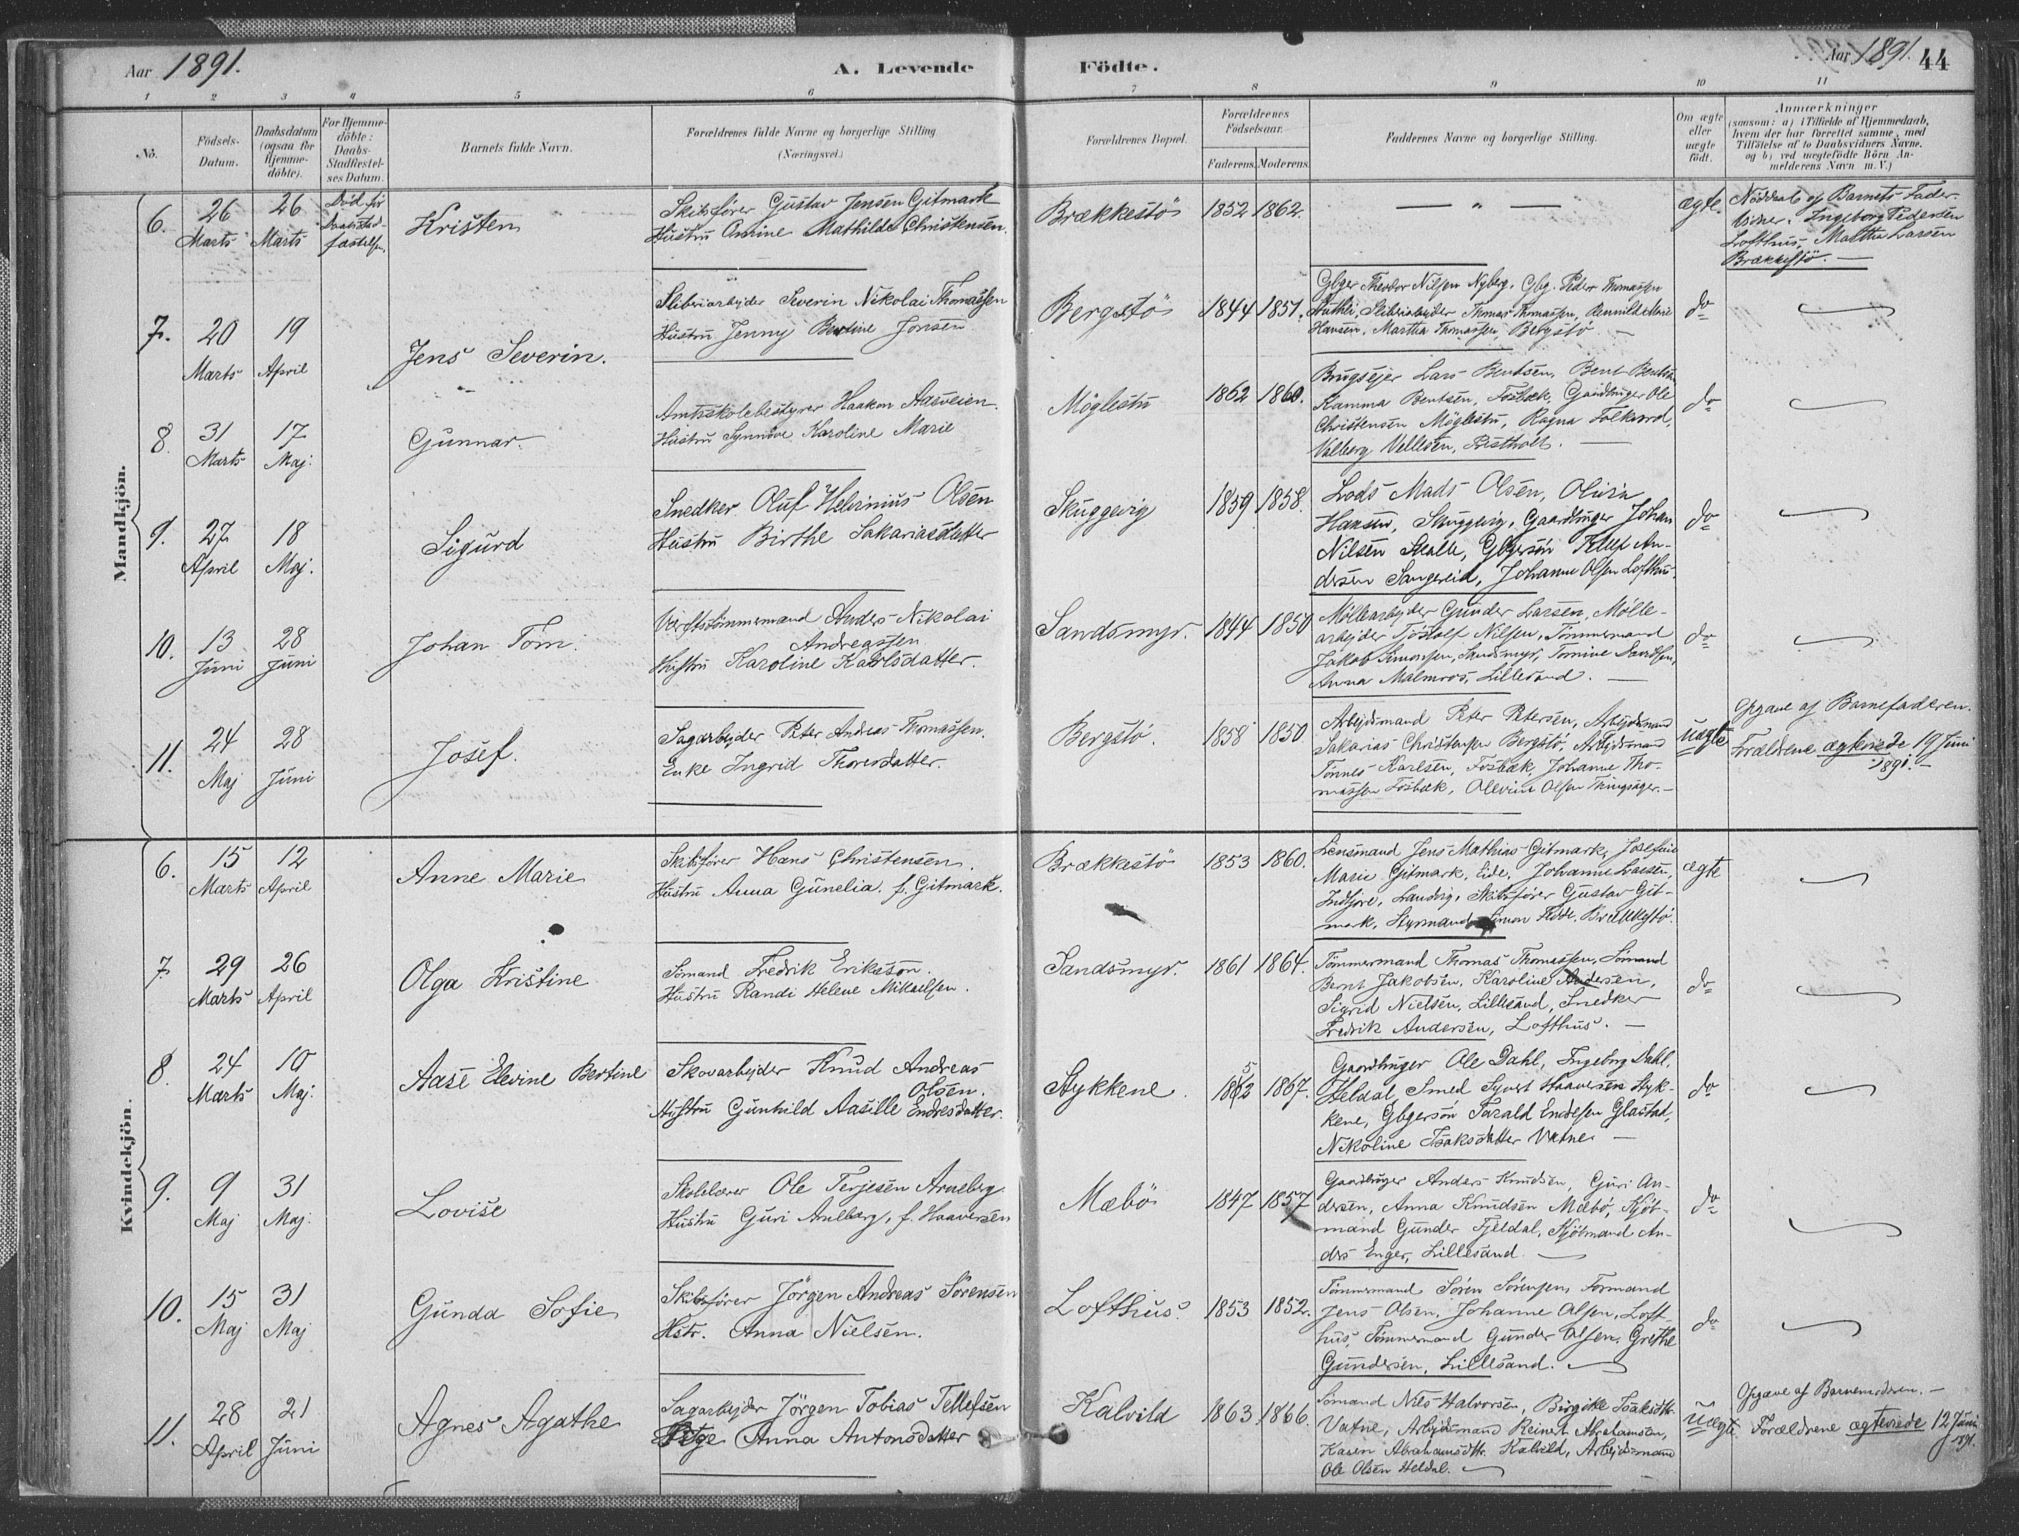 Aar 1891.
A. Levende Födte.
Aar 1891. 44
1 2 3 4 5 6 7 8 9 10 11
No.
Födsels-Datum.
Daabsdatum (ogsaa for Hjemme-döbte).
For Hjemme-döbte: Daabs-Stadfæstel-ses Datum.
Barnets fulde Navn.
Forældrenes fulde Navne og borgerlige Stilling (Næringsvei.)
Forældrenes Bopæl.
Forældrenes Födselsaar.
Faderens. Moderens.
Faddernes Navne og borgerlige Stilling.
Om ægte eller uægte födt.
Anmærkninger
(saasom: a) i Tilfælde af Hjemmedaab,
hvem der har forrettet samme, med
Tilföielse af to Daabsvidners Navne.
og b) ved uægtefödte Börn An-
melderens Navn m.V.)
Mandkjön.
6. 26 Marts 26 Marts Död før Daabstad-fæstelsen Kristen
Skibsfører Gustav Jensen Gitmark
Hustru Omine Mathilde Christensen.
Brækkestö 1852 1862.
— " —
ægte.
Nöddaab af Barnets Fader
Vidner. Ingeborg Pedersen
Lofthus, Martha Larsen
Brækkestö. —
7. 20 Marts 19 April Jens Severin.
Sliberiarbejder Severin Nikolai Thomassen
Hustru Jenny Bertine Jensen
Bergstö 1844 1851.
Gbger Theodor Nilsen Nyberg, Gbg. Peder Thomassen
Sliberiarbejder Thomas Thomassen,
Hansen, Martha Thomassen, Bergstö —
do
8. 31 Marts 17 Maj. Gunnar.
Amtsskolebestyrer Haakon Aasveien.
Hustru Synnöve Karoline Marie
Möglestu 1862 1860.
Brugsejer Lars Bentsen, Bent Bentsen
Kamma Bentsen, Fosbæk, Gaardbruger Ole
Christensen Möglestu, Ragna Folkvord,
Valborg Vellesen, —
do
9. 27 April 18 Maj. Sigurd
Snedker Oluf Olsen
Hustru Birthe Sakariasdatter
Skuggevig 1859 1858.
Lods Mads Olsen, Olivia
Hansen, Skuggevig, Gaardbruger Johan
Nilsen Gbgersön Tellef An-
dersen Sangereid, Johanne Olsen Lofthus.
do
10. 13 Juni 28 Juni Johan Tom.
Værftstömmermand Anders Nikolai
Andreassen
Hustru Karoline Karlsdatter.
Sandsmyr. 1844 1850
Möllearbejder Gunder Larsen, Mölle-
arbejder Tjöstolf Nilsen, Tömmermand
Jakob Simonsen, Sandsmyr, Tomine
Anna Malmros, Lillesand. —
do
11. 24 Maj 28 Juni Josef.
Sagarbejder Peter Andreas Thomassen.
Enke Ingrid Thoresdatter.
Bergstö. 1858 1850
Arbejdsmand Peter Petersen, Arbejdsmand
Sakarias Christensen Bergstö, Arbejdsmand
Tönnes Karlsen, Fosbæk, Johanne Tho-
massen Fosbæk, Olevine Olsen Tingsager. —
uægte
Opgave af Barnefaderen.
Forældrene ægteviede 19 Juni
1891. —
Kvindekjön.
6. 15 Marts 12 April Anne Marie
Skibsfører Hans Christensen
Hustru Anna Gunelia. f. Gitmark.
Brækkestö 1853 1860.
Lensmand Jens Mathias Gitmark, Josefine
Marie Gitmark, Eide, Johanne Larsen,
Indfjore, Landvig, Skibsfører Gustav Git-
mark, Styrmand Simon Brækkestö.
ægte
7. 29 Marts 26 April Olga Kristine
Sömand Fredrik Eriksson.
Hustru Randi Helene Mikaelsen.
Sandsmyr. 1861 1864.
Tömmermand Thomas Thomassen, Sömand
Bernt Jakobsen, Karoline Andersen,
Sigrid Nielsen, Lillesand, Snedker
Fredrik Andersen, Lofthus. —
do
8. 24 Marts 10 Maj. Aase Elevine Bertine
Skovarbejder Knud Andreas
Olsen.
Hustru Gunhild Aasille Endresdatter.
Stykkene. 1852 1867.
Gaardbruger Ole Dahl, Ingeborg Dahl,
Heldal, Smed Syvert Haaversen Styk-
kene, Gbgersön Tarald Endresen Glastad,
Nikoline Isaksdatter Vatne. —
do
9. 9 Maj 31 Maj. Lovise
Skolelærer Ole Terjesen Arneberg
Hustru Guri f. Haaversen
Mæbö 1847 1857
Gaardbruger Anders Knudsen, Guri An-
dersen, Anna Knudsen Mæbö, Kjöb-
mand Gunder Fjeldal, Kjöbmand An-
ders Enger, Lillesand —
do
10. 15 Maj 31 Maj Gunda Sofie
Skibsfører Jörgen Andreas Sörensen
Hstr. Anna Nielsen.
Lofthus. 1853 1852.
Tömmermand Sören Sörensen, Formand
Jens Olsen, Johanne Olsen, Loft-
hus, Tömmermand Gunder Olsen, Grethe
Gundersen, Lillesand. —
do
11. 28 April 21 Juni Agnes Agathe
Sagarbejder Jörgen Tobias Tellefsen
Pige Anna Antonsdatter
Kalvild 1863 1866.
Sömand Nils Halvorsen, Birgitte Isaksdtr.
Vatne, Arbejdsmand Reinert Abrahamsen,
Karen Abrahamsdtr. Kalvild, Arbejdsmand
Ole Olsen Heldal. —
Uægte
Opgave af Barnemoderen. —
Forældrene ægteviede 12 Juni
1891.